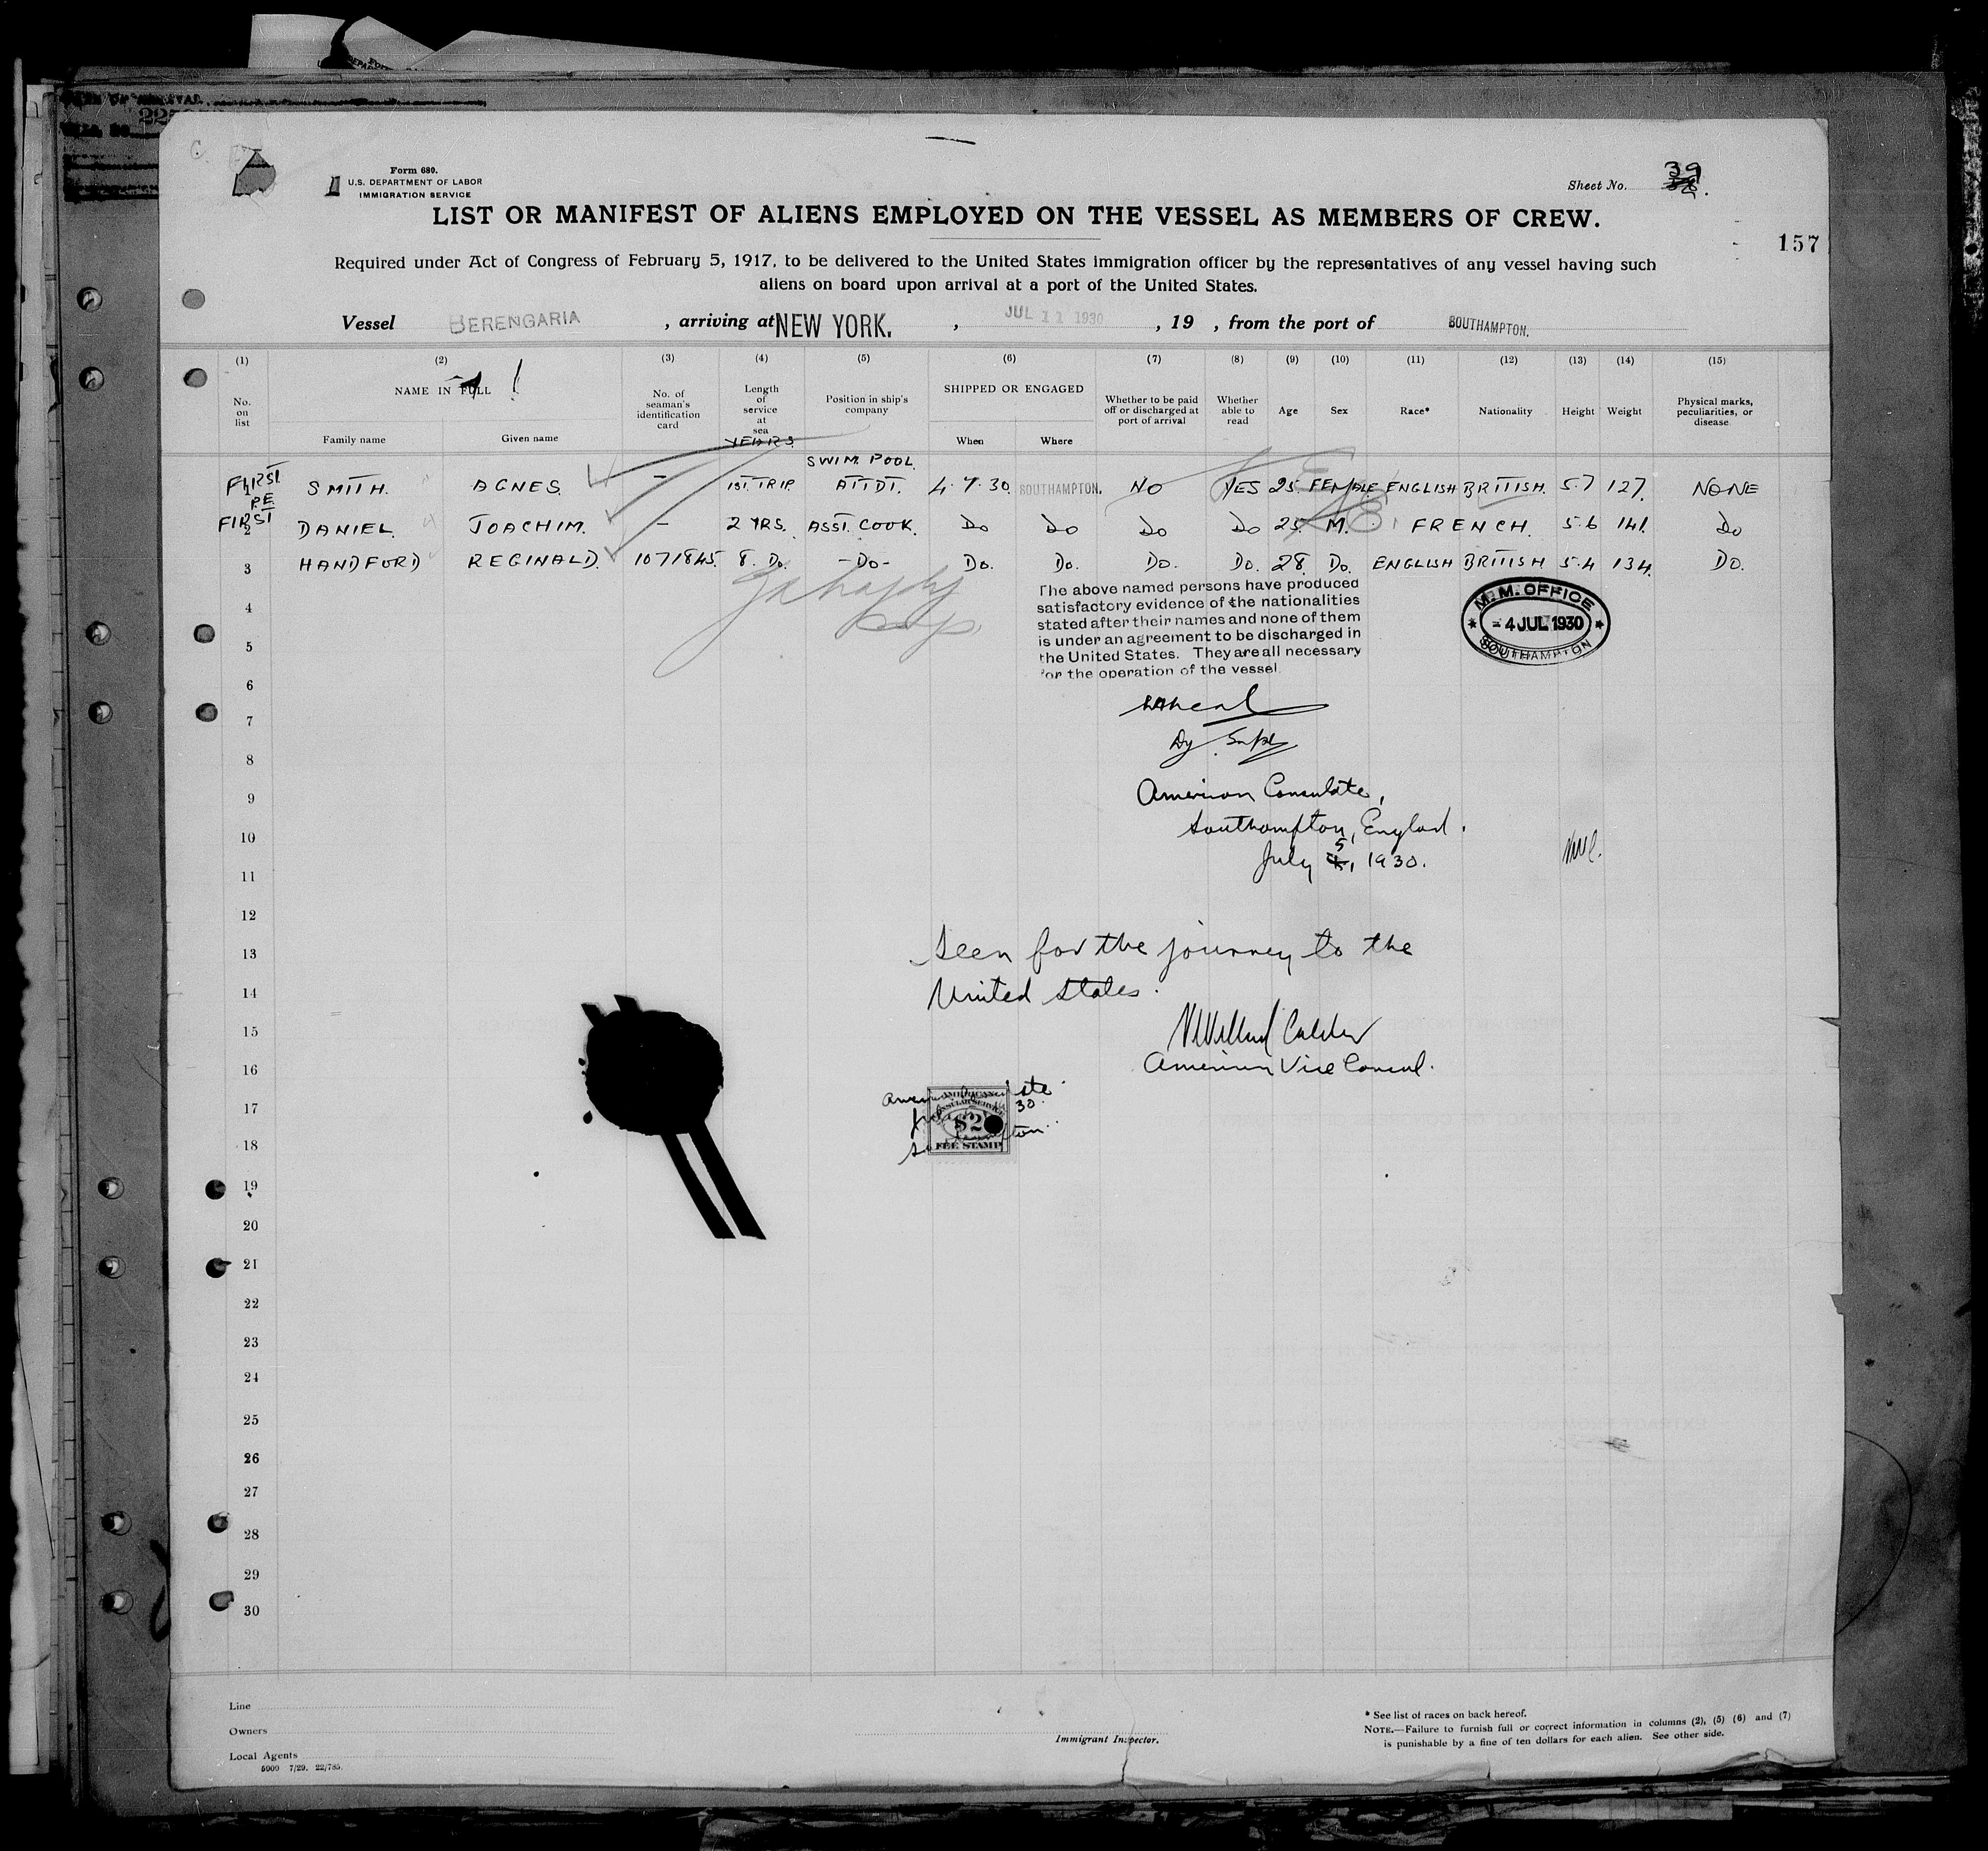 Form 680.
U.S. DEPARTMENT OF LABOR
IMMIGRATION SERVICE
Sheet No. 39
LIST OR MANIFEST OF ALIENS EMPLOYED ON THE VESSEL AS MEMBERS OF CREW.
157
Required under Act of Congress of February 5, 1917, to be delivered to the United States immigration officer by the representatives of any vessel having such
aliens on board upon arrival at a port of the United States.
Vessel BERENGARIA , arriving at NEW YORK. , JUL 11 1930 , 19 , from the port of SOUTHAMPTON.
(1) (2) (3) (4) (5) (6) (7) (8) (9) (10) (11) (12) (13) (14) (15)
No. on list
NAME IN FULL
Family name Given name
No. of seaman's identification card
Length of service at sea
YEARS
Position in ship's company
SHIPPED OR ENGAGED
When Where
Whether to be paid off or discharged at port of arrival
Whether able to read
Age Sex Race* Nationality Height Weight
Physical marks, peculiarities, or disease
SWIM. POOL
FIRST 1 SMITH. AGNES. - 1ST. TRIP. ATTDT. 4.7.30. SOUTHAMPTON. NO YES 25 FEMALE ENGLISH BRITISH. 5.7 127. NONE
RE
FIRST 2 DANIEL. JOACHIM. - 2 YRS. ASST. COOK. Do Do Do Do 25. M. FRENCH. 5.6 141. Do
3 HANDFORD REGINALD. 1071845. 8. Do. -Do- Do. Do. Do. Do. 28. Do. ENGLISH BRITISH 5.4 134. Do.
The above named persons have produced
satisfactory evidence of the nationalities
stated after their names and none of them
is under an agreement to be discharged in
the United States. They are all necessary
for the operation of the vessel.
M.M. OFFICE
- 4 JUL 1930
SOUTHAMPTON
4
5
6
7
Dy. Supt
8
American Consulate,
9
Southampton, England.
10
July 5, 1930.
11
12
Seen for the journey to the
13
United States.
14
15
American Vice Consul.
16
17
$2
FEE STAMP
18
19
20
21
22
23
24
25
26
27
28
29
30
Line
Owners
Local Agents
5000 7/29. 22/785.
Immigrant Inspector.
* See list of races on back hereof.
NOTE.—Failure to furnish full or correct information in columns (2), (5) (6) and (7)
is punishable by a fine of ten dollars for each alien. See other side.